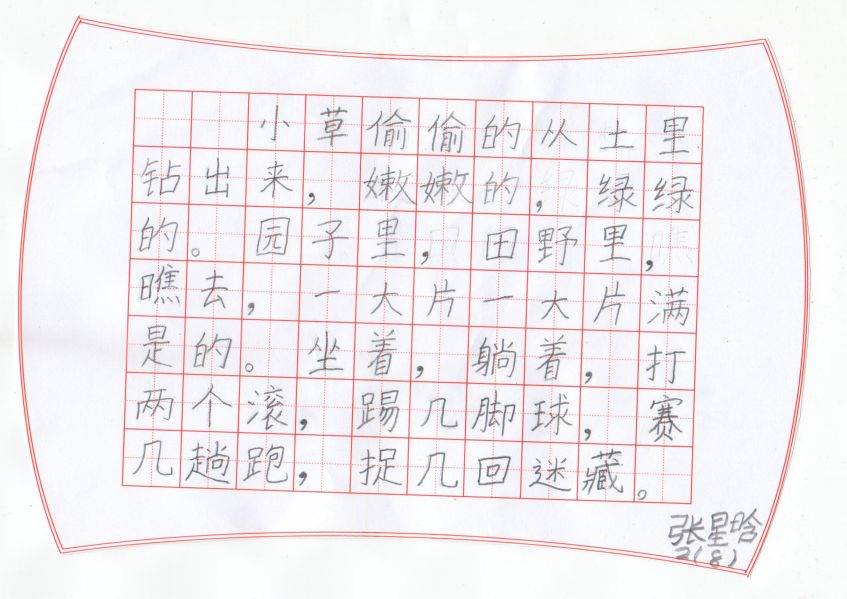 小草偷偷的从土里
钻出来，嫩嫩的，绿绿
的。园子里，田野里，
瞧去，一大片一大片满
是的。坐着，躺着，打
两个滚，踢几脚球，赛
几趟跑，捉几回迷藏。
张星晗
2(8)